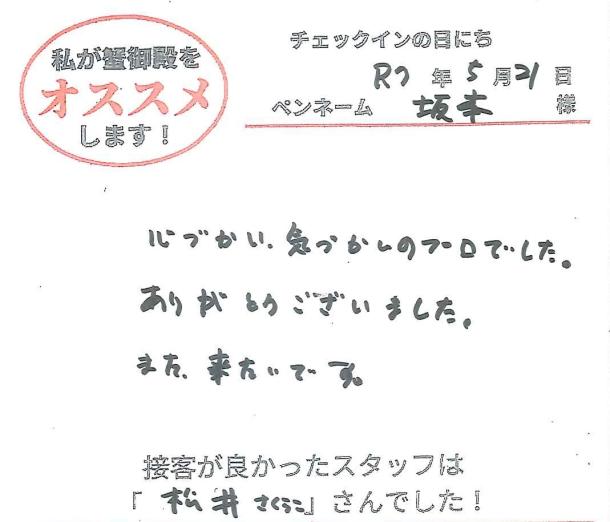 私が蟹御殿を
オススメ
します！
チェックインの日にち
R7年5月21日
ペンネーム 坂本 様
心づかい、気づかいのプロでした。
ありがとうございました。
また、来たいです。
接客が良かったスタッフは
「松井さくらこ」さんでした！